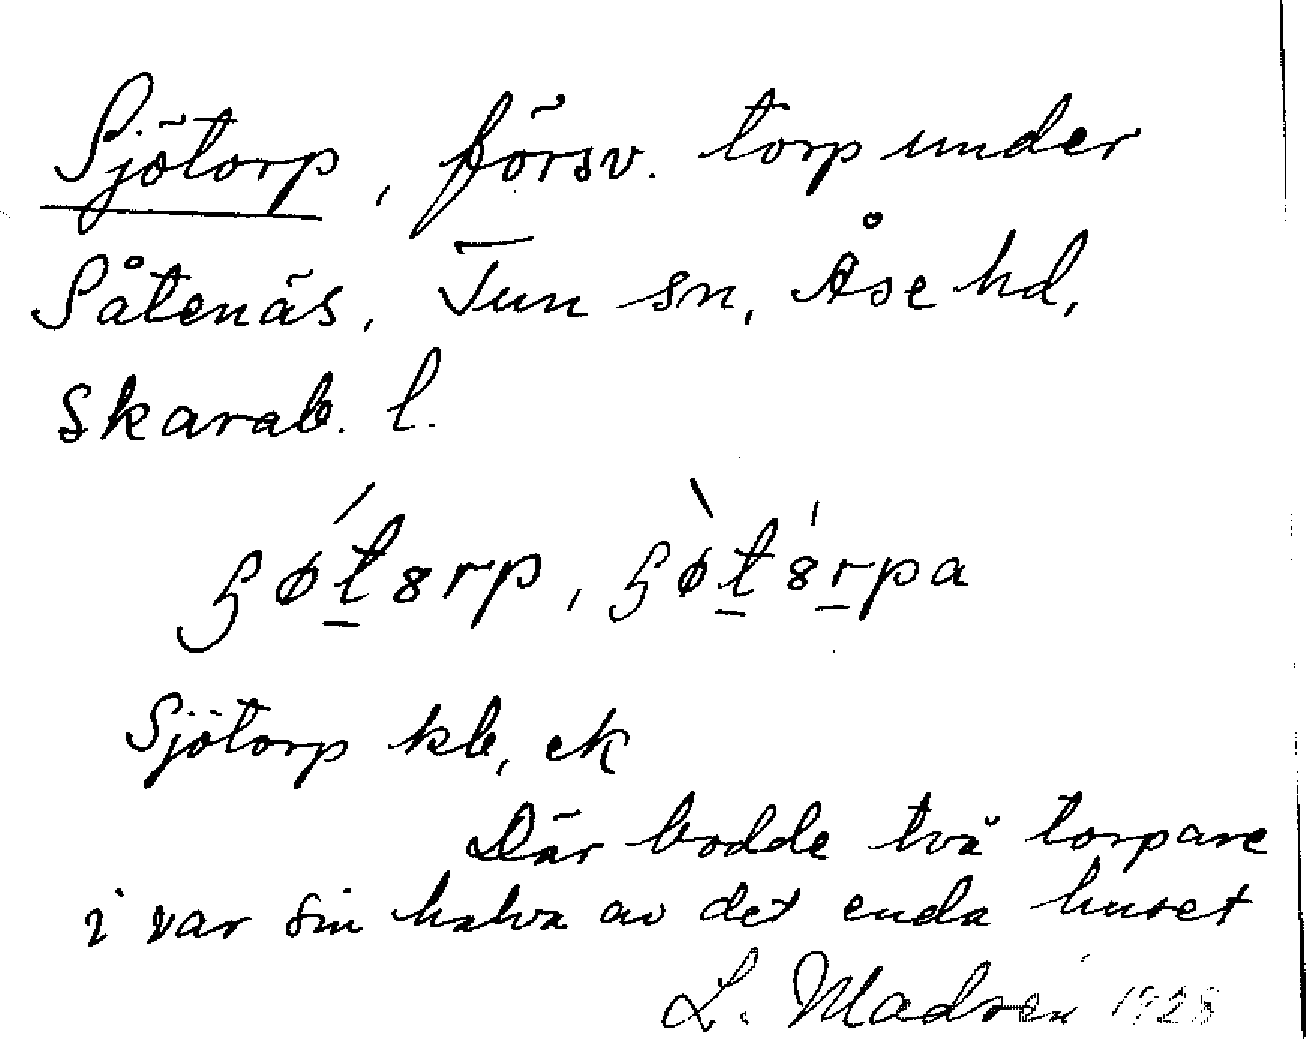 Sjötorp, försv. torp under
Såtenäs, Tun sn, Åse hd,
Skarab. l.
Sjötorp kb, ek
Där bodde två torpare
i var sin halva av det enda huset
L. Madsén 1928